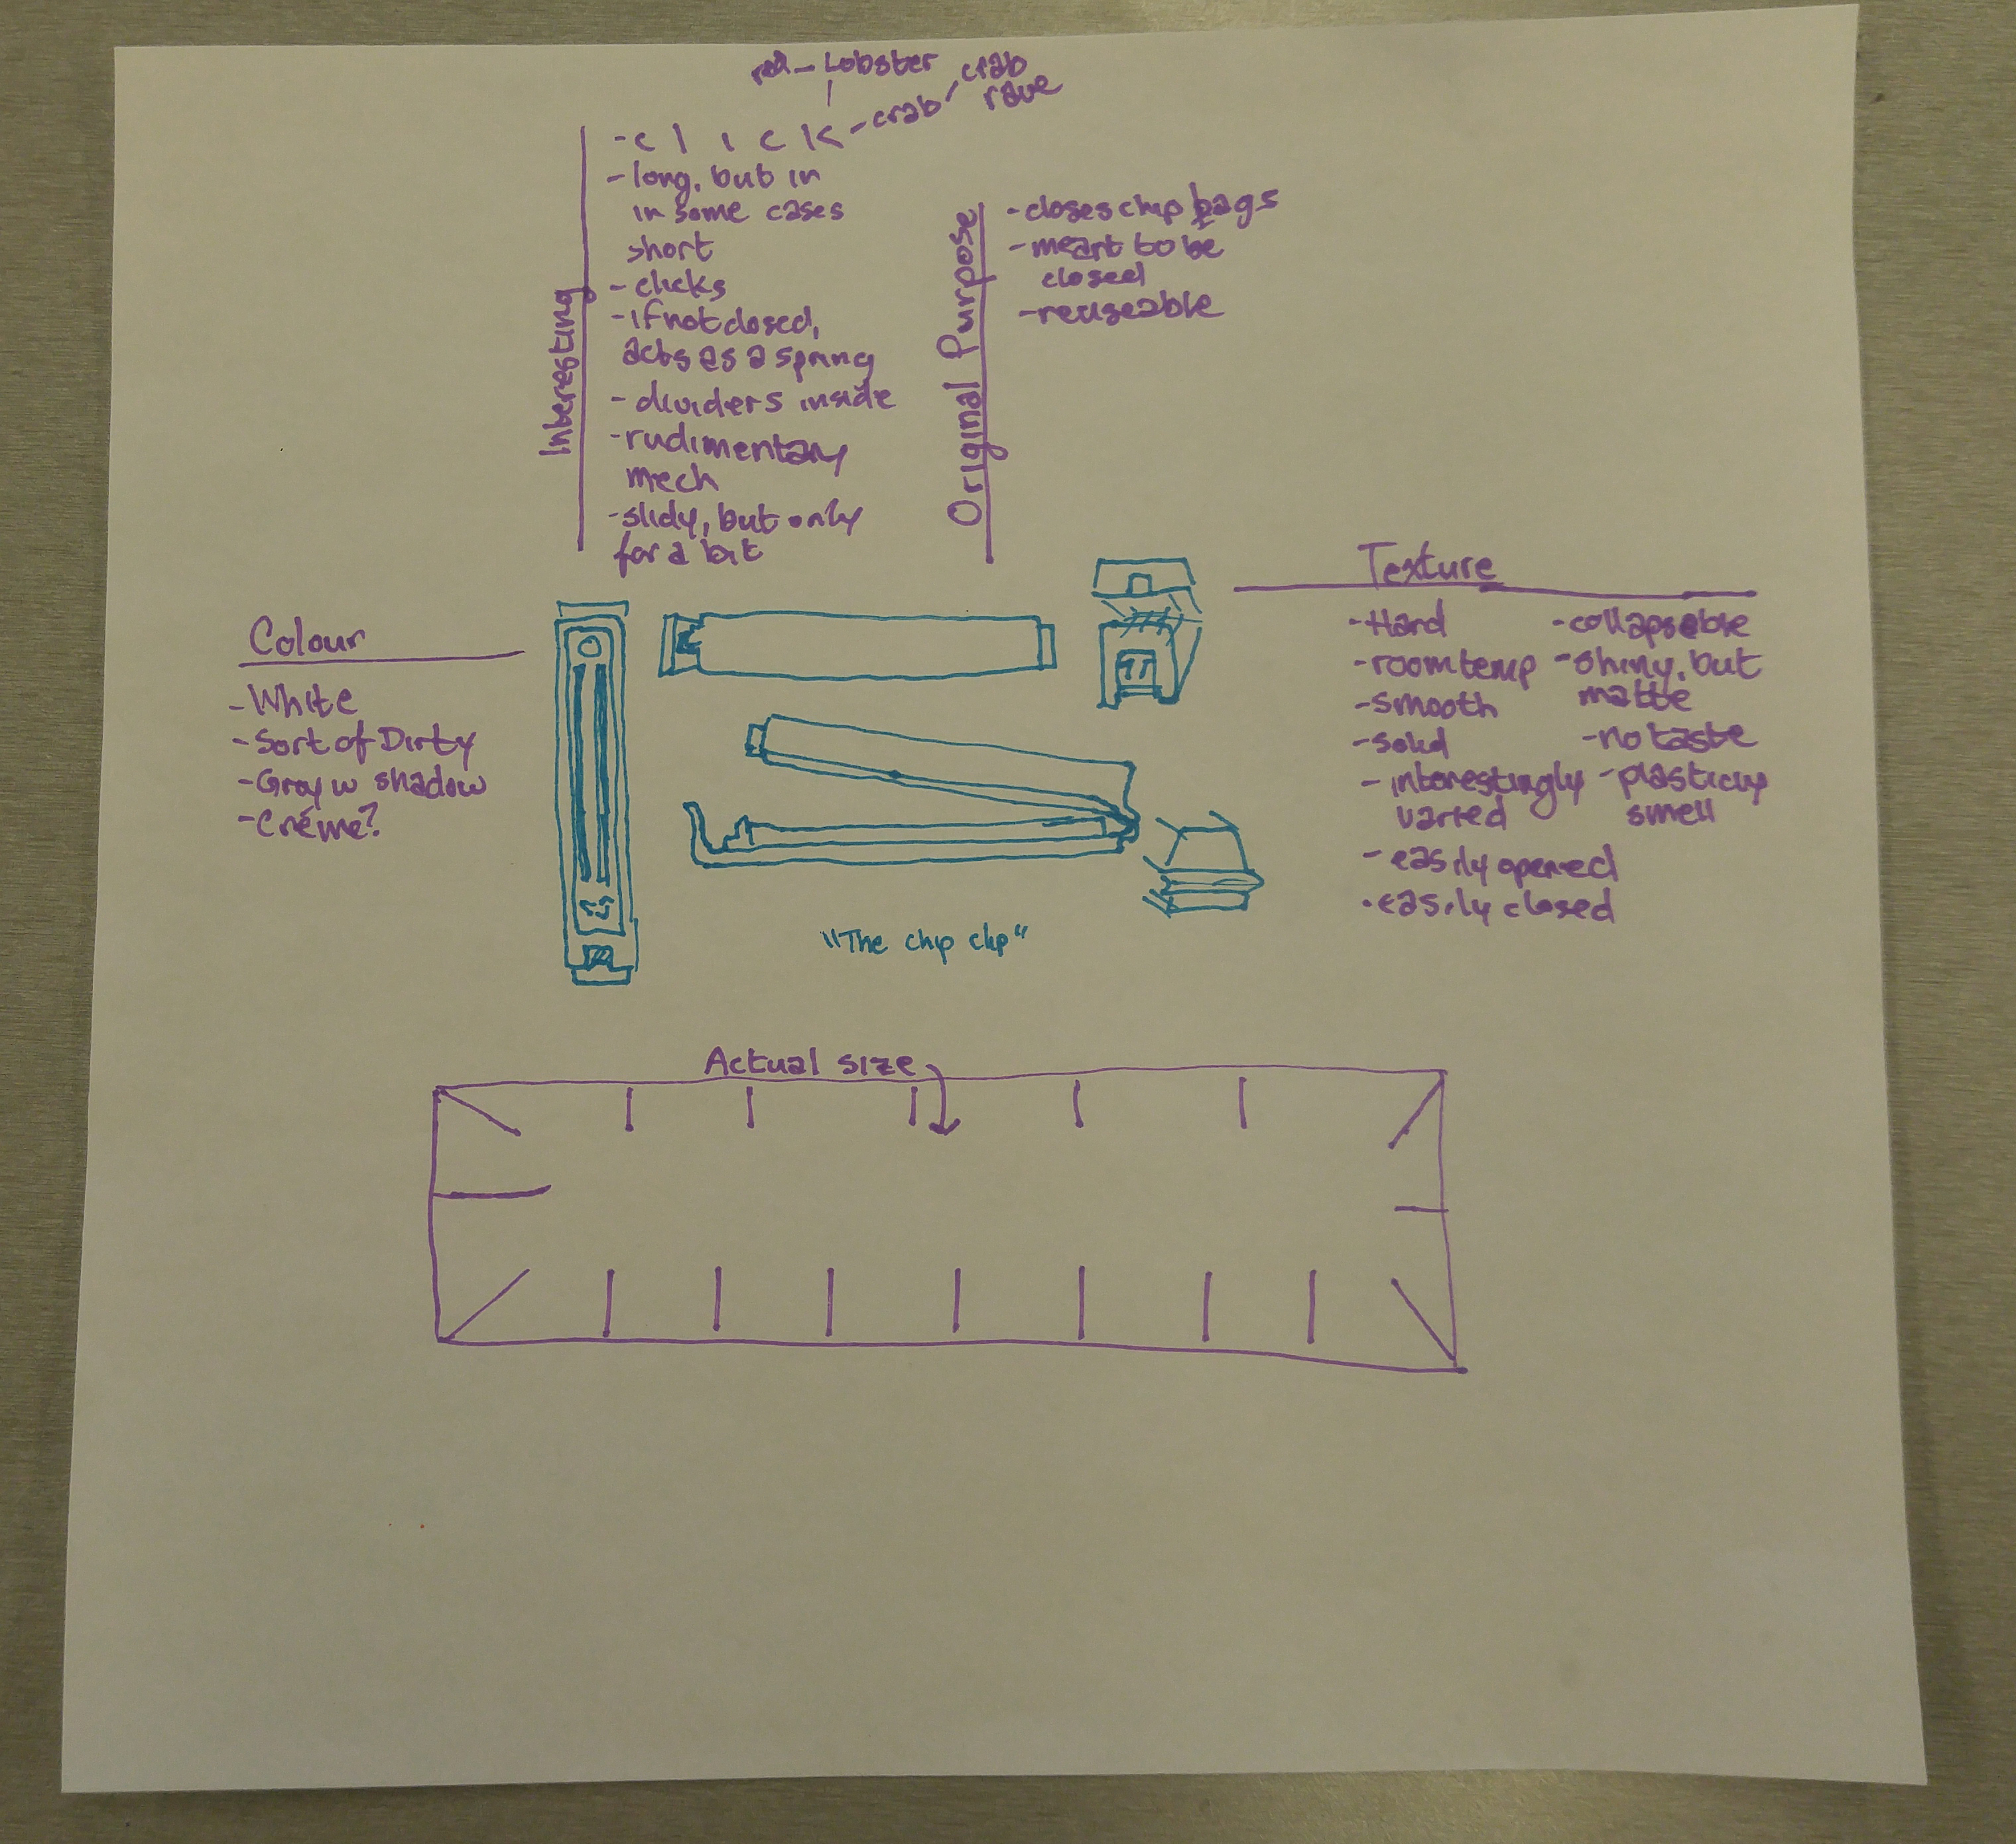 Lobster
crab
rave
crab
- c l i c k
- long, but in
in some cases
short
- clicks
- if not closed,
acts as a spring
- dividers inside
- rudimentary
mech
- slidy, but only
for a bit
Interesting
Original Purpose
- closes chip bags
- meant to be
closed
- reuseable
Colour
- White
- Sort of Dirty
- Gray w shadow
- Créme?
Texture
- Hard
- room temp
- smooth
- solid
- interestingly
varied
- easily opened
- easily closed
- collapseble
- shiny, but
matte
- no taste
- plasticiy
smell
"The chip clip"
Actual size